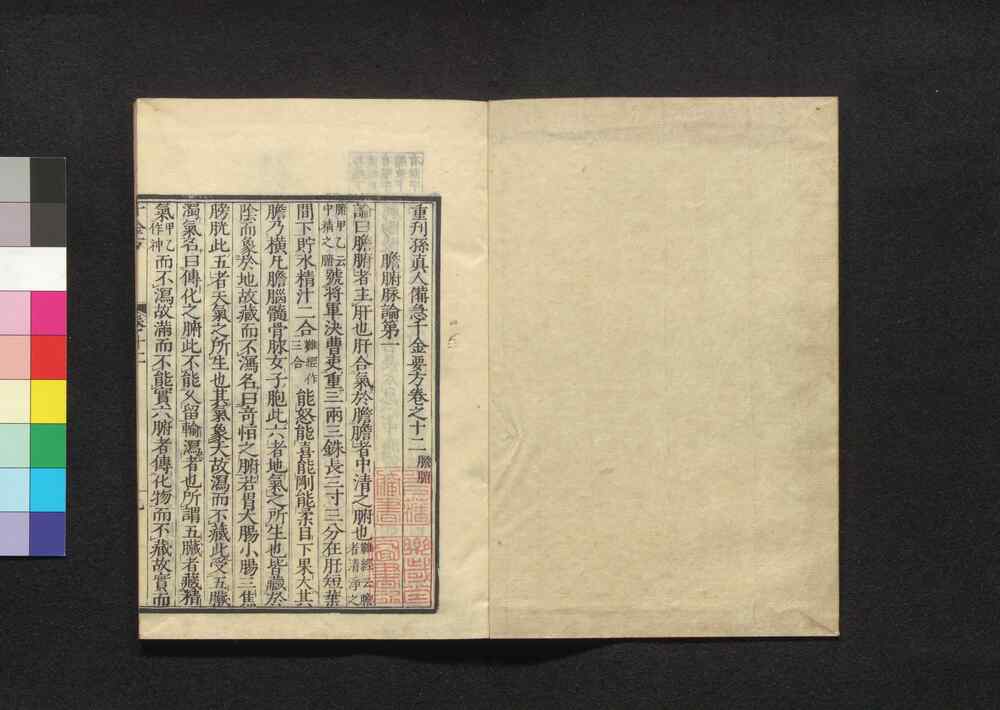 重刋孫真人備急千金要方卷之十二 膽腑
膽腑脉論第一
論曰膽腑者主肝也肝合氣於膽膽者中清之腑也 難經云膽者清淨之
腑甲乙云中精之腑 號將軍決曹吏重三兩三銖長三寸三分在肝短葉
間下貯水精汁二合 難經作三合 能怒能喜能剛能柔目下果大其
膽乃橫凡膽腦髓骨脉女子胞此六者地氣之所生也皆藏於
陰而象於地故藏而不瀉名曰奇恒之腑若胃大腸小腸三焦
膀胱此五者天氣之所生也其氣象天故瀉而不藏此受五臟
濁氣名曰傳化之腑此不能久留輸瀉者也所謂五臟者藏精
氣 甲乙作神 而不瀉故滿而不能實六腑者傳化物而不藏故實而